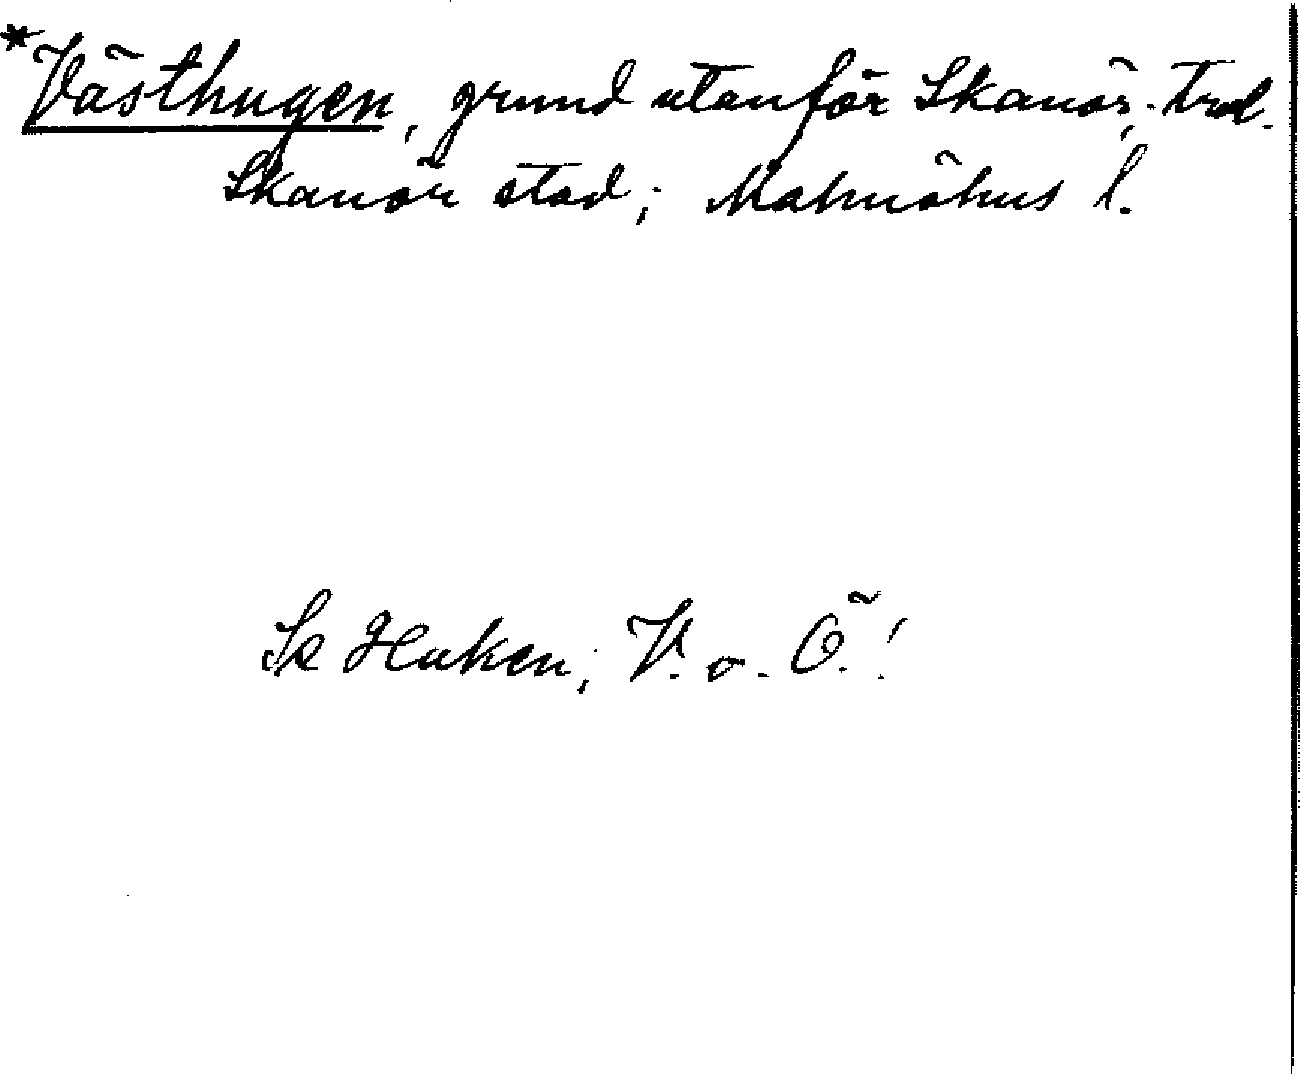 *Västhugen, grund utanför Skanör; trol.
Skanör stad; Malmöhus l.
Se Huken, V. o. Ö.!